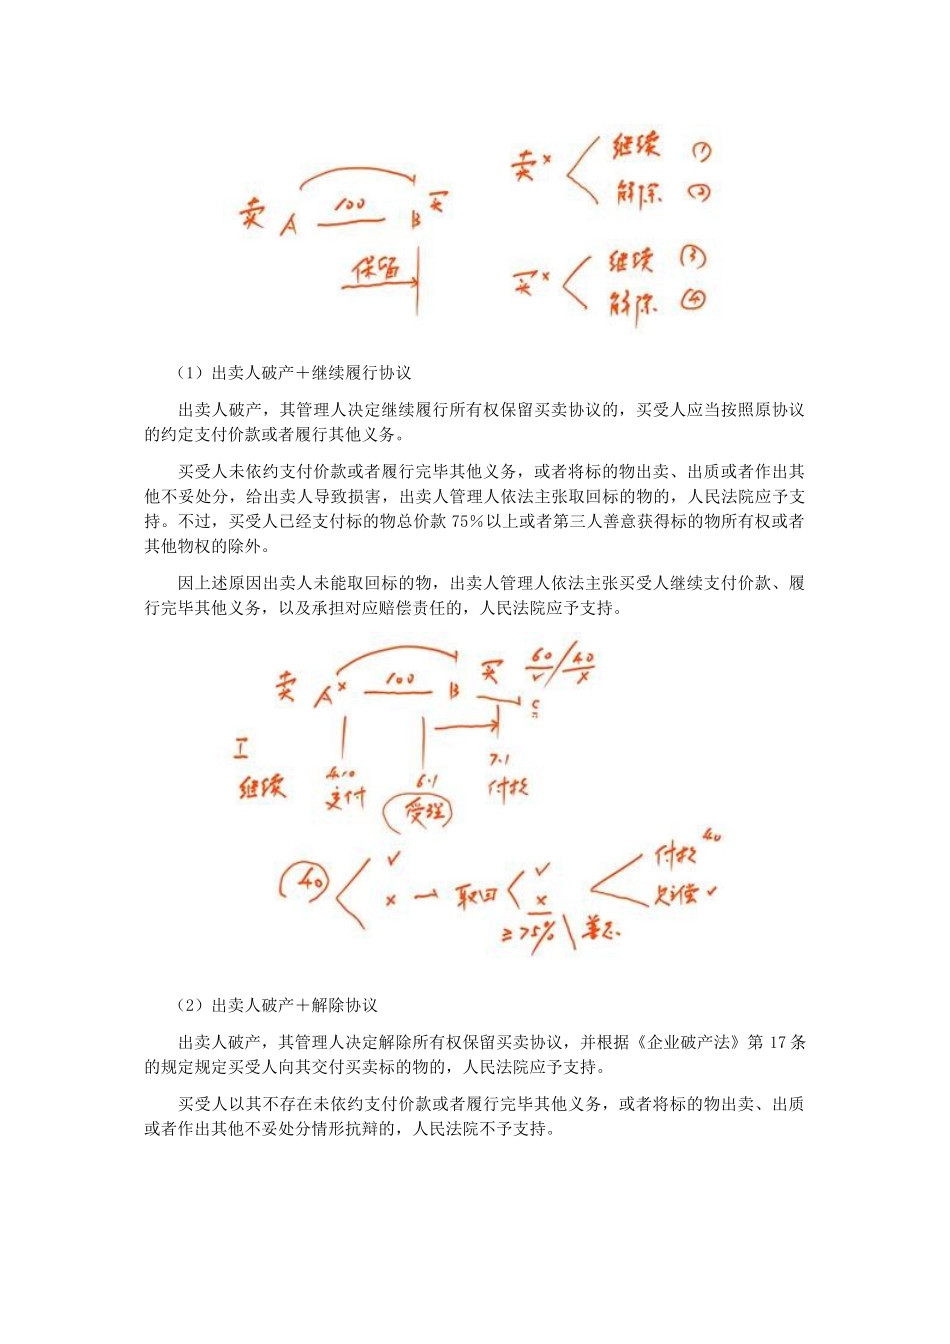 卖× 继续 ①
解除 ②
卖 A 100 B 买
保留
买× 继续 ③
解除 ④
（1）出卖人破产＋继续履行协议
出卖人破产，其管理人决定继续履行所有权保留买卖协议的，买受人应当按照原协议
的约定支付价款或者履行其他义务。
买受人未依约支付价款或者履行完毕其他义务，或者将标的物出卖、出质或者作出其
他不妥处分，给出卖人导致损害，出卖人管理人依法主张取回标的物的，人民法院应予支
持。不过，买受人已经支付标的物总价款 75％以上或者第三人善意获得标的物所有权或者
其他物权的除外。
因上述原因出卖人未能取回标的物，出卖人管理人依法主张买受人继续支付价款、履
行完毕其他义务，以及承担对应赔偿责任的，人民法院应予支持。
卖 A× 100 B 买 60/40
√ ×
C
I
继续
4.10 6.1 7.1
交付 受理 付款
40 √
× → 取回 √
×
≥75% \ 善意
付款 40
√
（2）出卖人破产＋解除协议
出卖人破产，其管理人决定解除所有权保留买卖协议，并根据《企业破产法》第 17 条
的规定规定买受人向其交付买卖标的物的，人民法院应予支持。
买受人以其不存在未依约支付价款或者履行完毕其他义务，或者将标的物出卖、出质
或者作出其他不妥处分情形抗辩的，人民法院不予支持。